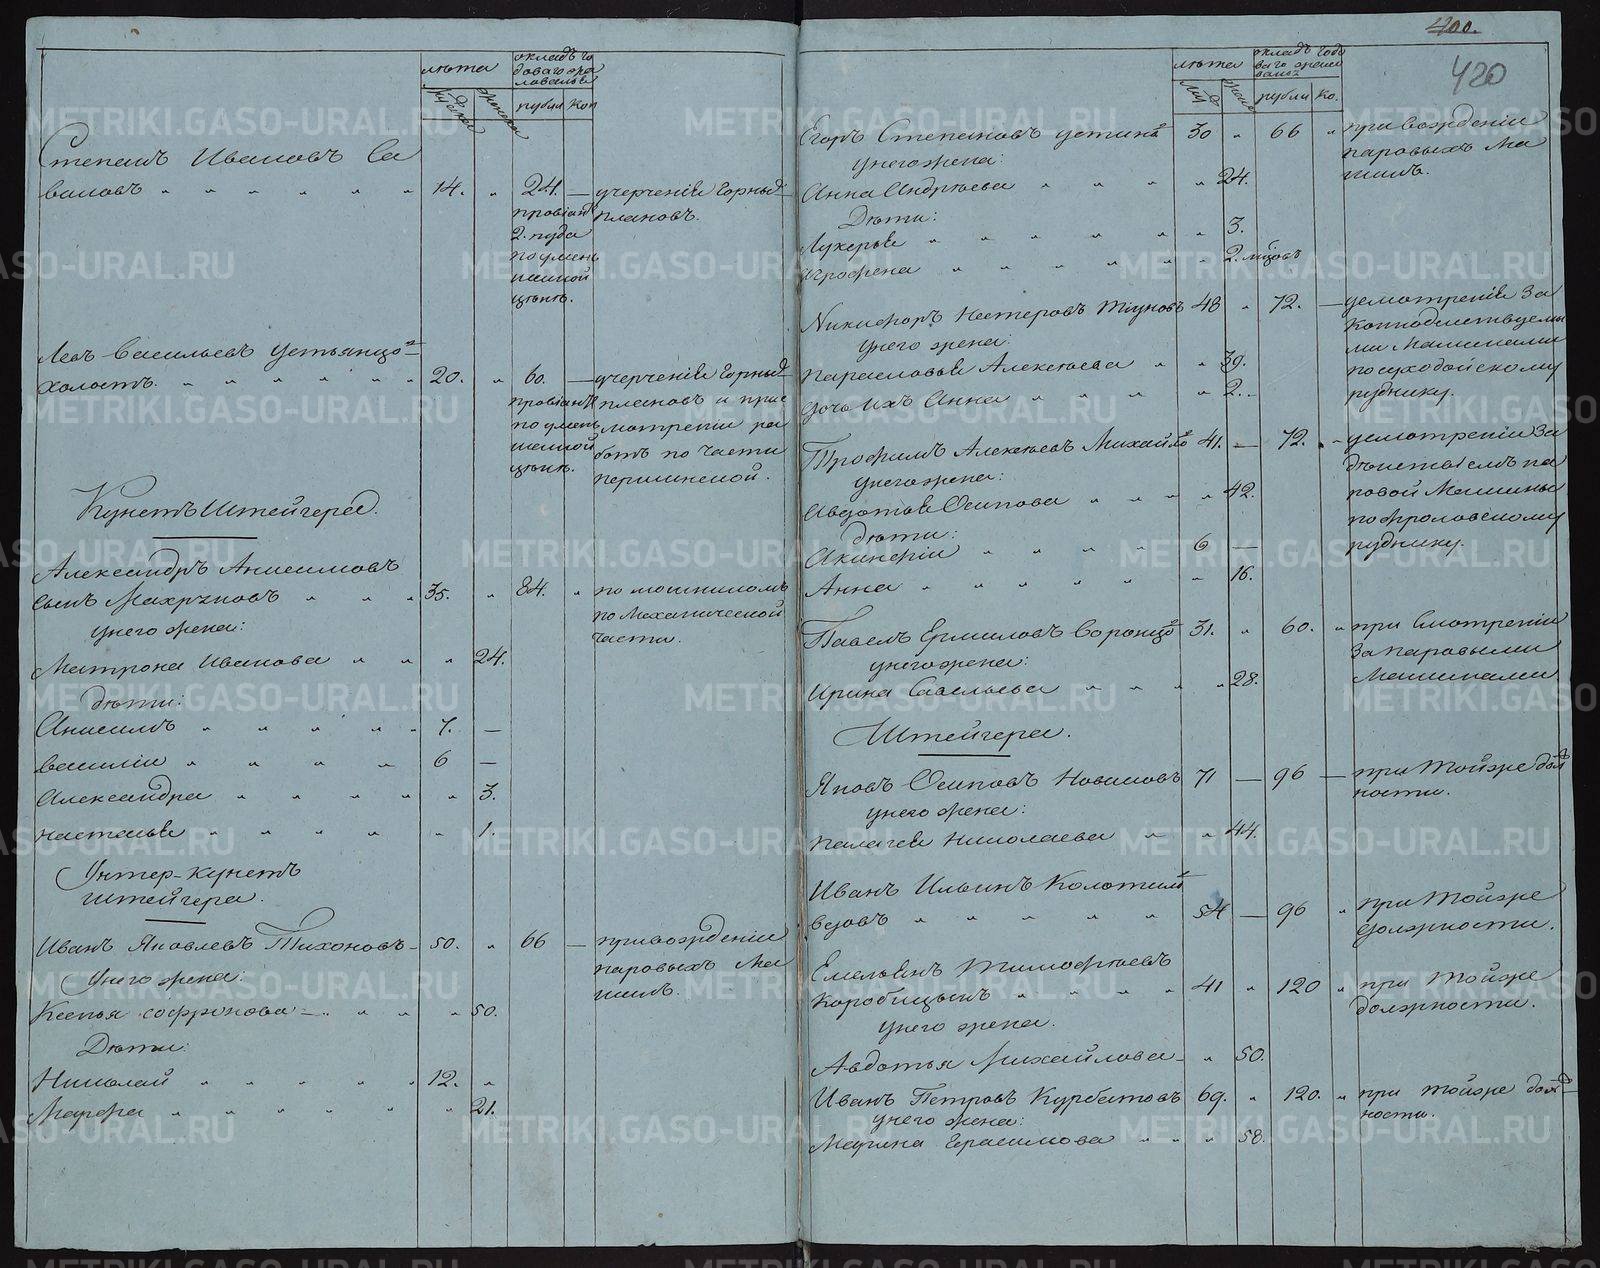 лѣта
окладъ го
доваго жа
лованья
мужска
женска
рубли
коп
Степанъ Ивановъ Са
валовъ 14. 24. — учерченіи горных
провіанта плановъ.
2. пуда
по умень
шенной
цѣнѣ.
Левъ Васильевъ Устьянцо
холостъ. 20. 60. — учерченіи горных
провіанта плановъ и прис
по умень мотреніи ра
шенной ботъ по части
цѣнѣ. перминской.
Кунстъ Штейгера.
Александръ Анисимовъ
сынъ Махруновъ 35. 84. по мошинномъ
по механической
части.
унего жена:
Матрона Иванова 24.
Дѣти:
Анисимъ 7. —
Василіи 6 —
Александра 3.
Настасья 1.
Унтер-кунстъ
штейгера.
Иванъ Яковлевъ Тихоновъ 50. 66 — привожденіи
паровыхъ ма
шинъ.
Унего жена:
Ксенья Софронова 50.
Дѣти:
Николай 12.
Марфа 21.
400.
420
лѣта
окладъ годо
ваго жало
ванья
муж
женс
рубли
ко.
Егоръ Степановъ Устин 30 66 при вожденіи
паровыхъ ма
шинъ.
унего жена:
Анна Андреева 24.
Дѣти:
Лукерья 3.
Агрофена 2. мѣсцовъ
Никифоръ Нестеровъ Тіуновъ 48 72. — усмотреніи за
коннодействуемы
ми машинами
по суходойскому
руднику.
унего жена:
Парасковья Алексѣева 39.
дочь ихъ Анна 2.
Трофимъ Алексѣевъ Михайло 41. — 72. усмотреніи за
дѣиствіемъ па
ровой машины
по фроловскому
руднику.
унего жена:
Авдотья Осипова 42.
дѣти:
Акинфіи 6 —
Анна 16.
Павелъ Ермиловъ Воронцо 31. 60. при смотреніи
за паровыми
машинами
унего жена:
Ирина Савельева 28.
Штейгера.
Яковъ Осиповъ Новиковъ 71 — 96 — при тойже дол
ности.
унего жена:
Палагея Николаева 44.
Иванъ Ильинъ Колотил
вдовъ 54 — 96 при тойже
должности.
Емельянъ Тимофѣевъ
Коробицынъ 41 120 при тойже
должности.
унего жена.
Авдотья Михайлова 50.
Иванъ Петровъ Курбатовъ 69. 120. при тойже дол
ности.
унего жена:
Марина Герасимова 58.
METRIKI.GASO-URAL.RU